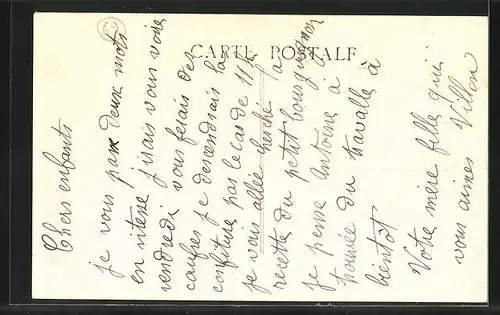 CARTE POSTALE
Chers enfants
je vous passe deux mots
en vitesse j irais vous voir
vendredi vous ferais des
je descendrais la
confiture par le car de 11 h
je suis allée cherché la
recette du petit bourguignon
je pense Antoine a
trouvée du travalle à
bientot
Votre mère fille qui
vous aimes Villon